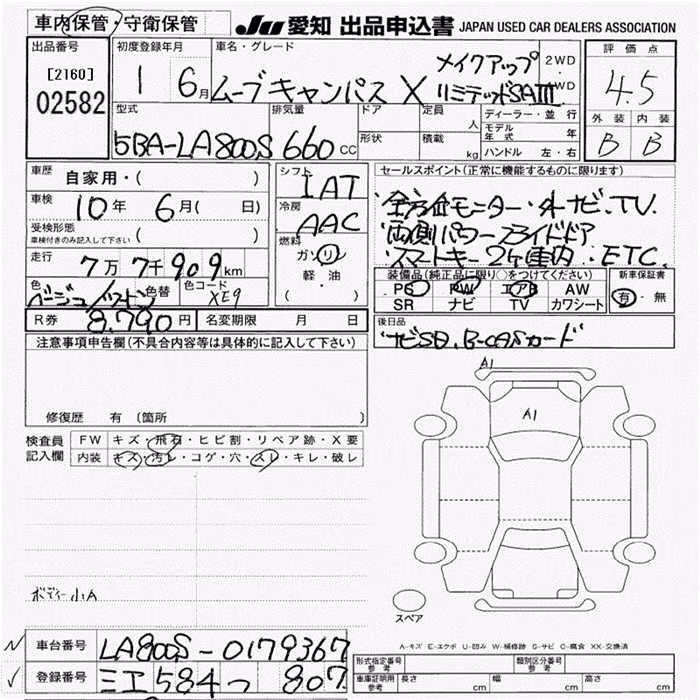 車内保管・守衛保管
JU 愛知 出品申込書 JAPAN USED CAR DEALERS ASSOCIATION
出品番号
[2160]
02582
初度登録年月
1 6月
車名・グレード
ムーブキャンバス X メイクアップ
リミテッドSAⅢ
2WD
・
WD
評価点
4.5
外装 内装
B B
型式
5BA-LA800S
排気量
660 CC
ドア
形状
定員
人
積載
kg
ディーラー・並行
モデル年式 年
ハンドル 左・右
車歴 自家用・( )
車検 10年 6月( 日)
受検形態
車検付きのみ記入して下さい ( )
走行 7万7千909km
色 ベージュ/ツートン 色替
( )
色コード
XE9
シフト
IAT
冷房
AAC
燃料
ガソリン
軽・油
( )
セールスポイント(正常に機能するものに限ります)
・全方位モニター・ナビ、TV.
・両側パワースライドドア
・スマートキー2ケ車内 ・ETC.
装備品(純正品に限り○をつけてください)
PS PW エアB AW
SR ナビ TV カワシート
新車保証書
有・無
R券 8,790円
名変期限 月 日
後日品
"ナビSD、B-CASカード"
注意事項申告欄(不具合内容等は具体的に記入して下さい)
修復歴 有 〔箇所 〕
検査員
記入欄
FW キズ・飛石・ヒビ割・リペア跡・X要
内装 キズ・汚レ・コゲ・穴・スレ・キレ・破レ
A1
A1
ボディー小A
スペア
A-キズ E-エクボ U-凹み W-補修跡 S-サビ C-腐食 XX-交換済
車台番号 LA800S-0179367
登録番号 三重 584 つ 807
形式指定番号
参考
類別区分番号
参考
車庫証明用
参考
長さ cm
幅 cm
高さ cm